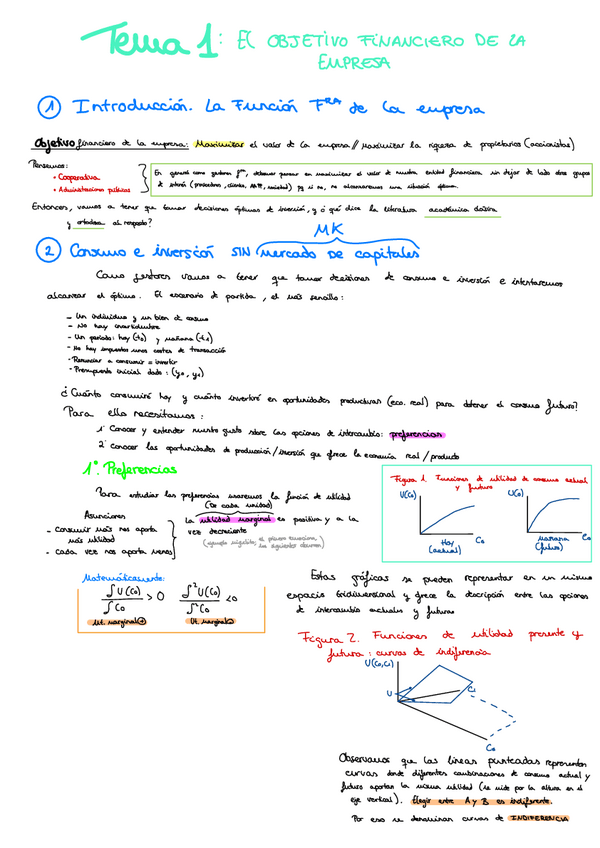 Tema 1: EL OBJETIVO FINANCIERO DE LA
EMPRESA
① Introducción. La Función Fra de la empresa
Objetivo financiero de la empresa: Maximizar el valor de la empresa // Maximizar la riqueza de propietarios (accionistas)
Pensemos:
• Cooperativa
• Administraciones públicas
En general como gestores fros, debemos pensar en maximizar el valor de nuestra entidad financiera sin dejar de lado otros grupos
de interés (proveedores, clientes, sociedad) pq si no, no alcanzaremos una situación óptima.
Entonces, vamos a tener que tomar decisiones óptimas de inversión, y ¿qué dice la literatura académica
y ortodoxa al respecto?
MK
② Consumo e inversión SIN mercado de capitales
Como gestores vamos a tener que tomar decisiones de consumo e inversión e intentaremos
alcanzar el óptimo. El escenario de partida, el más sencillo:
- Un individuo y un bien de consumo
- No hay incertidumbre
- Un periodo: hoy (t0) y mañana (t1)
- No hay impuestos costes de transacción
- Renunciar a consumir = invertir
- Presupuesto inicial dado: (y0, y1)
¿Cuánto consumiré hoy y cuánto invertiré en oportunidades productivas (eco. real) para obtener el consumo futuro?
Para ello necesitamos:
1º Conocer y entender nuestro gusto sobre las opciones de intercambio: preferencias
2º Conocer las oportunidades de producción/inversión que ofrece la economía real/producto
1º. Preferencias
Para estudiar las preferencias usaremos la función de utilidad
(de cada unidad)
Asunciones
- Consumir más nos aporta
más utilidad
- cada vez nos aporta menos
La utilidad marginal es positiva y a la
vez decreciente
Figura 1. Funciones de utilidad de consumo actual
y futuro
U(C0)
C0
Hoy
(actual)
U(C0)
C0
Mañana
(futuro)
Matemáticamente:
∫U(C0)
∫C0
>0
∫²U(C0)
∫²C0
<0
Ut. marginal ⊕
Ut. marginal
Estas gráficas se pueden representar en un mismo
espacio tridimensional y ofrece la descripción entre las opciones
de intercambio actuales y futuras
Figura 2. Funciones de utilidad presente y
futura: curvas de indiferencia
U(C0,C1)
U
C1
C0
Observamos que las líneas punteadas representan
curvas donde diferentes combinaciones de consumo actual y
futuro aportan la misma utilidad (se mide por la altura en el
eje vertical). Elegir entre A y B es indiferente.
Por eso se denominan curvas de INDIFERENCIA